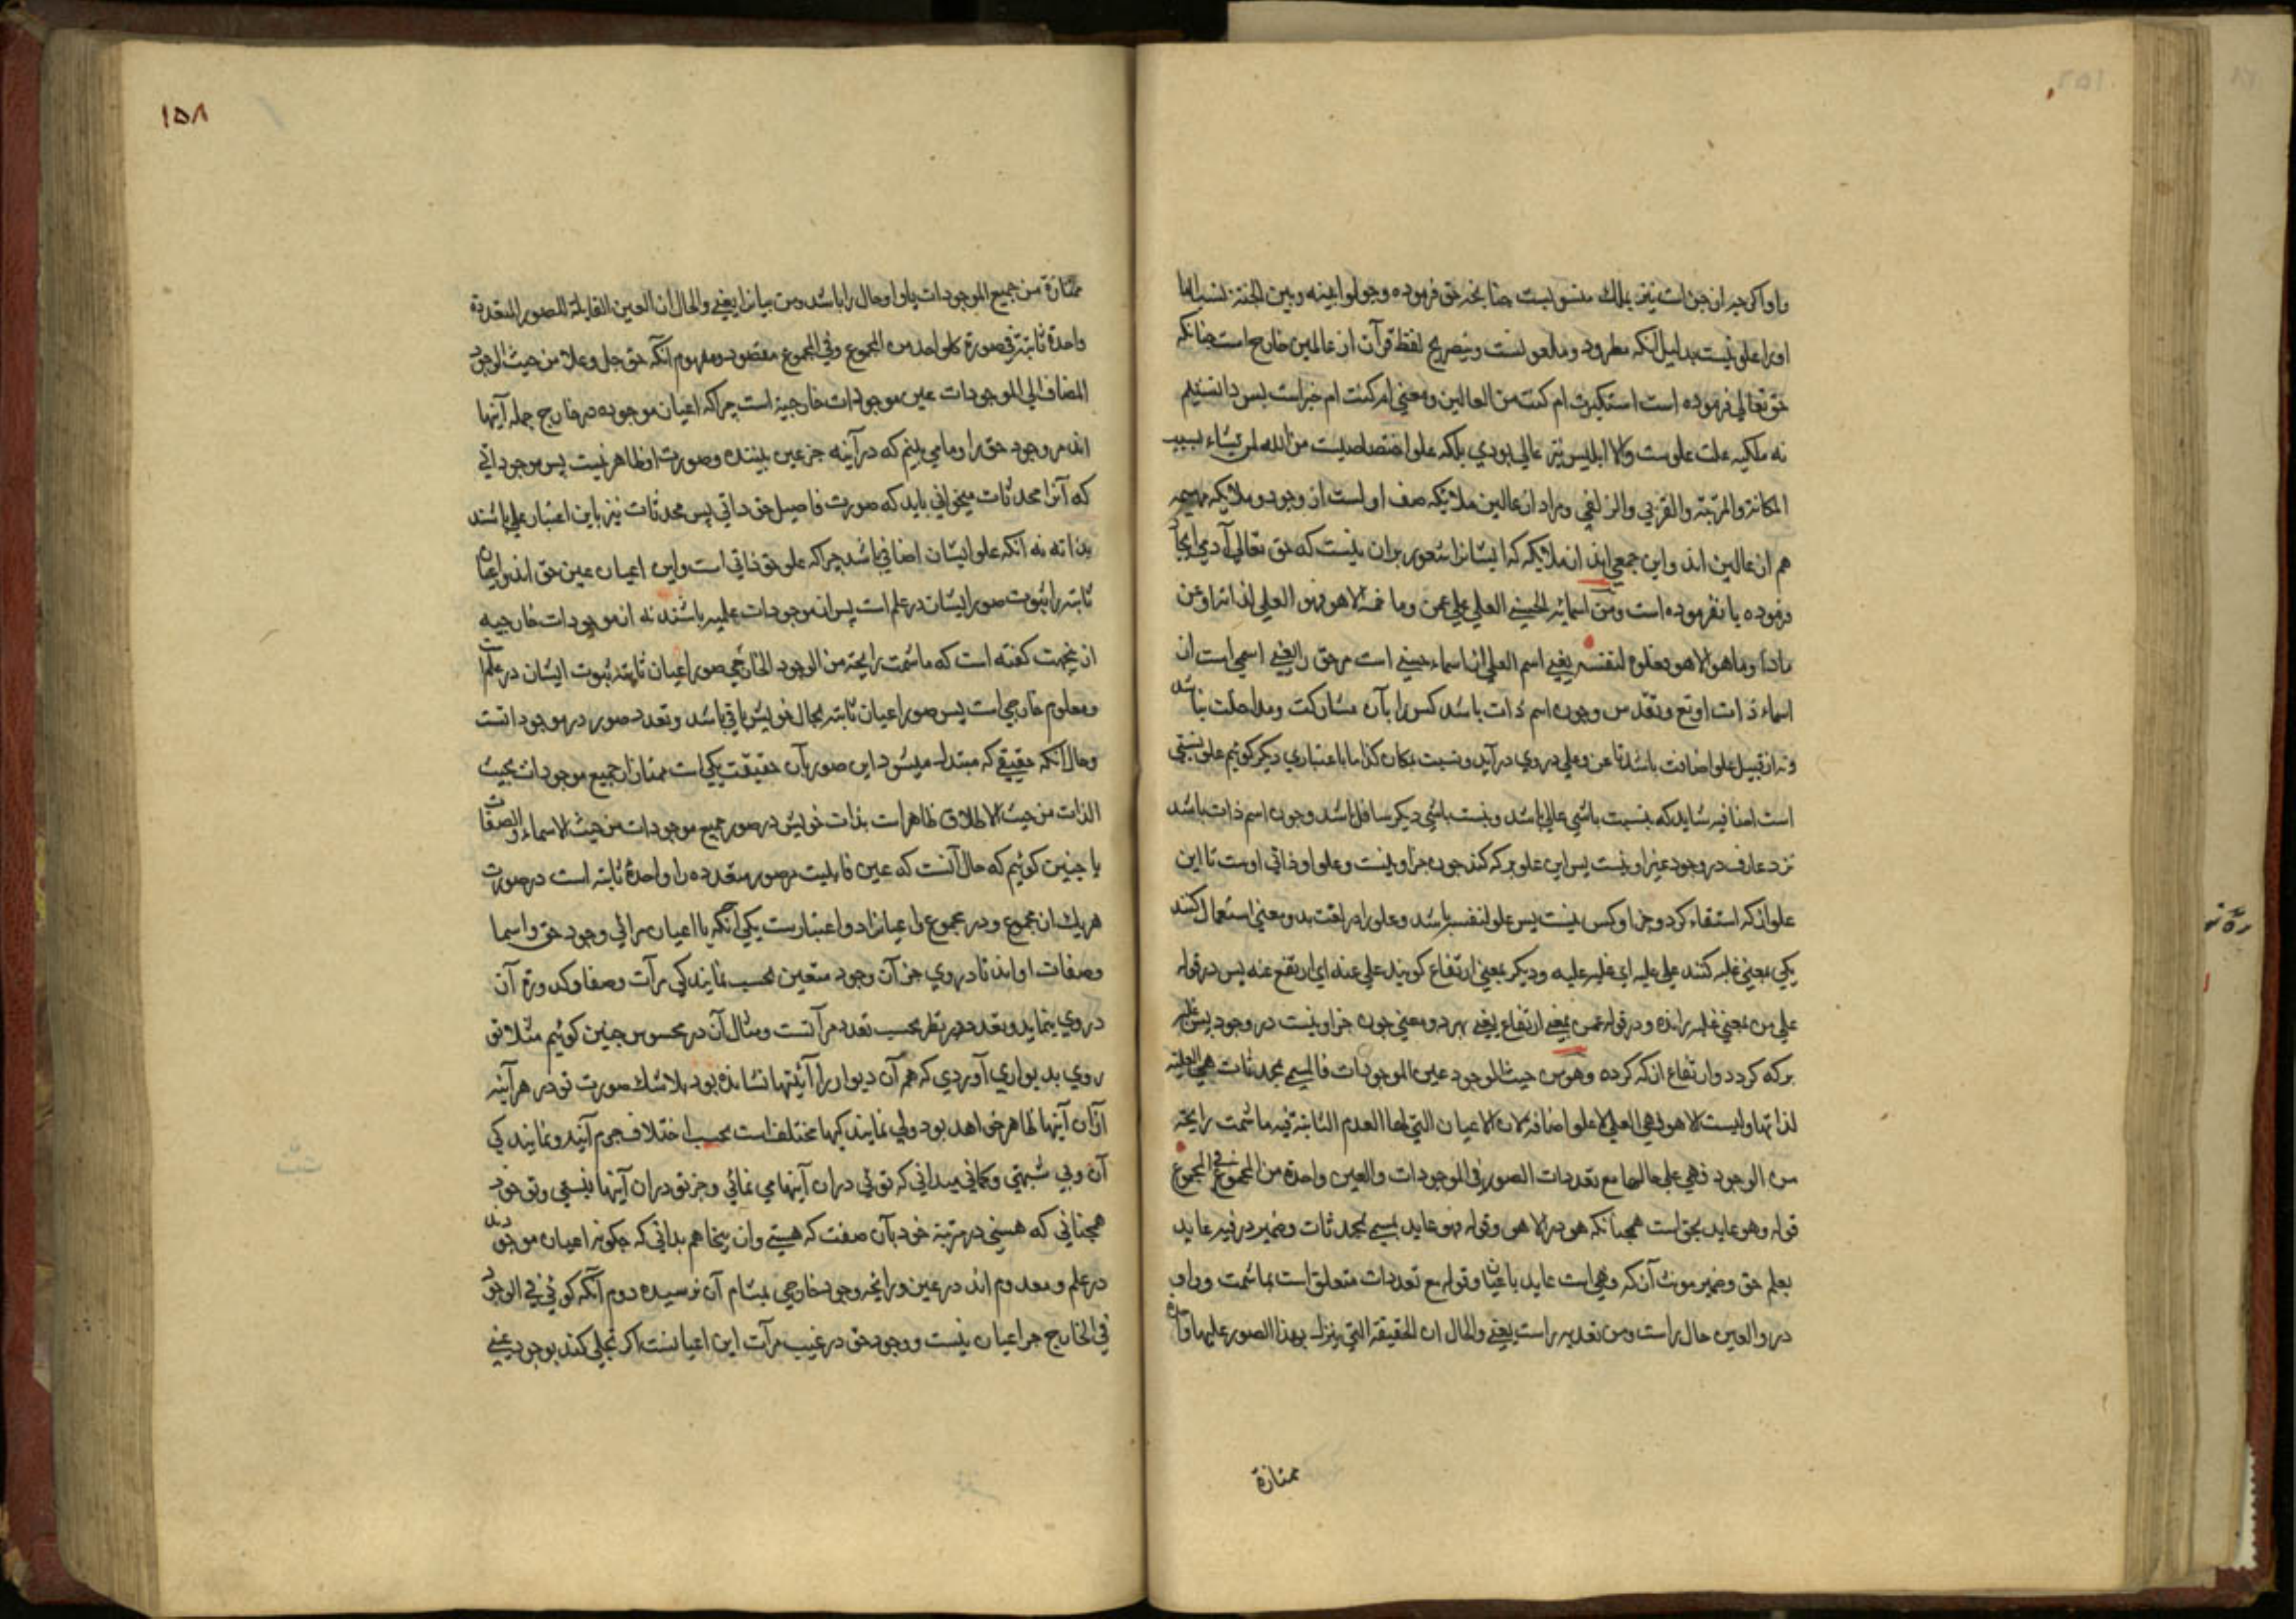 واو اکرچه از جن است نیز بملک منسوبست چنانچه حق فرموده وجعلوا بینه وبین الجنة نسبا اما
او را علو نیست بدلیل آنکه مطرود و ملعونست وبتصریح لفظ قرآن از عالین خارج است چنانکه
حق تعالی فرموده است استکبرت ام کنت من العالین ومعنی ام کنت ام خبر است پس دانستیم
نه ملکیه علت علوست والا ابلیس نیز عالی بودی بلکه علو اختصاصیست من الله لمن یشاء بسبب
المکانة والمرتبة والقربی والزلفی ومراد از عالین ملایکه صف اولست از وجود وملایکه مهیمه
هم از عالین اند واین جمعی اند از ملایکه که ایشانرا شعور بران نیست که حق تعالی آدمی ایجاد
فرموده یا نفرموده است ومن اسمائه الحسنی العلی علی من وما ثمة الا هو فهو العلی لذاته او عن
ماذا وما هو الا هو فعلوه لنفسه یعنی اسم العلی از اسماء حسنی است مر حق را یعنی اسمی است از
اسماء ذات او تع وتقدس وچون اسم ذات باشد کس را بآن مشارکت ومداخلت نباشد
ونه از قبیل علو اضافت باشد تا عن وعلی در وی درآید ونسبت مکان کذا ما باعتباری دیکر کوئیم علو نسبتی
است اضافیه شاید که بنسبت باشی عالی باشد وبنسبت باشی دیکر سافل باشد وچون اسم ذات باشد
نزد عارف در وجود غیر او نیست پس این علو بر که کند چون جز او نیست وعلو او ذاتی اوست تا این
علو از که استفاء کرد وجز او کس نیست پس علو لنفسه باشد وعلو را در لغت بدو معنی استعمال کنند
یکی بمعنی غلبه کنند علی علیه ای غلبه علیه ودیکر بمعنی ارتفاع کویند علی عنه ای ارتفع عنه پس در قوله
علی من بمعنی غلبه رانده ودر قوله عمن بمعنی ارتفاع یعنی بهر دو معنی چون جز او نیست در وجود پس غلبه
بر که کردد وارتفاع از که کرده وهو من حیث الوجود عین الموجودات فالمسمی محدثات هی العلیة
لذاتها ولیست الا هو فهی العلی لا علو اضافة لان الاعیان التی لها العدم الثابتة فیه ما شمت رایحة
من الوجود فهی علی حالها مع تعددات الصور فی الموجودات والعین واحدة من المجموع فی المجموع
قوله وهو عاید بحق است همچنانکه هو در الا هو وقوله فهو عاید بمسمی بمحدثات وضمیر در فیه عاید
بعلم حق وضمیر مونث آن که وهی است عاید باعیان وقوله مع تعددات متعلق است بما شمت وواو
در والعین حال راست ومن تعدیه راست یعنی والحال ان الحقیقة التی ینزل بهذا الصور علیها واحدة
ممتازة
١٥٨
ممتازة من جمیع الموجودات یا واو حال را باشد ومن بیانرا یعنی والحال ان العین القابلة للصور المتعددة
واحدة ثابتة فی صورة کل واحد من المجموع وفی المجموع مقصود ومفهوم آنکه حق جل وعلا من حیث الوجود
المضاف الی الموجودات عین موجودات خارجیة است چراکه اعیان موجوده در خارج جمله آینها
اند مر وجود حق را وما می بینم که در آینه جز عین بیننده وصورت او ظاهر نیست پس موجوداتی
که آنرا محدثات میخوانی باید که صورت فاصیل حق دانی پس محدثات نیز باین اعتبار علی باشند
بذاته نه آنکه علو ایشان اضافی باشد چراکه علو حق ذاتی است واین اعیان عین حق اند واعیان
ثابته را ثبوت صور ایشان در علم است پس از موجودات علمیه باشند نه از موجودات خارجیه
ازینجهت کفته است که ما شمت رایحة من الوجود الخارجی صور اعیان ثابته ثبوت ایشان در علم است
ومعلوم خارجی است پس صور اعیان ثابته بحال خویش باقی باشد وتعدد صور در موجوداتست
وحال آنکه حقیقی که مبتدل میشود این صور بآن حقیقت یکی است ممتاز از جمیع موجودات بحیث
الذات من حیث الاطلاق ظاهر است بذات خویش در صور جمیع موجودات من حیث الاسماء والصفات
یا چنین کوئیم که حال آنست که عین قابلیت مر صور متعدده را واحدة ثابته است در صورت
هر یک از مجموع ودر مجموع واعیانرا دو اعتبارست یکی آنکه با اعیان مرائی وجود حق واسما
وصفات او اند تا در وی جز آن وجود متعین بحسب نمایندکی مرآت وصفا وکدورة آن
در وی بنماید وتعدد در نظر بحسب تعدد مرآتست ومثال آن در محسوس چنین کوئیم مثلا تو
روی بدیواری آوردی که هم آن دیوار را آینتها نشانده بود بلاشک صورت تو در هر آینه
ازان آینها ظاهر خواهد بود ولی نمایندکیها مختلف است بحسب اختلاف جرم آینه ونمایندکی
آن وبی شبهتی وکمانی میدانی که توئی دران آینها می نمائی وجز تو دران آینها نیستی وتو خود
همچنانی که هستی در مرتبة خود بآن صفت که هستی وازینجا هم بدانی که چکونه اعیان موجود
در علم ومعدوم اند در عین ورایحه وجود خارجی بمشام آن نرسیده دوم آنکه کوئی فی الوجود
فی الخارج جز اعیان نیست ووجود حق در غیب مرآت این اعیانست اکر تجلی کند بوجود عینی